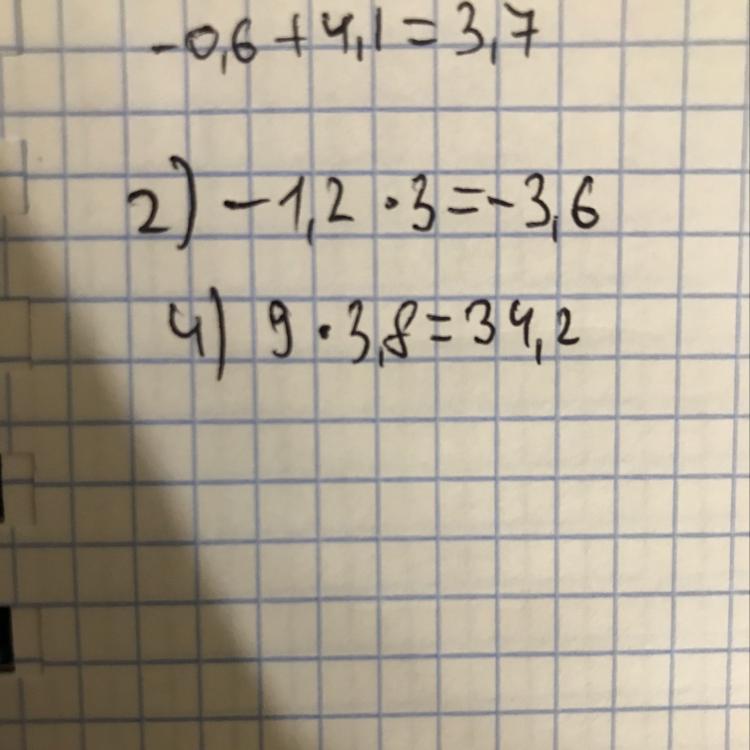 -0,6 + 4,1 = 3,7
2) -1,2 · 3 = -3,6
4) 9 · 3,8 = 34,2